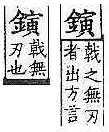 鏔
戟之無刃
者出方言
鏔
戟無
刃也